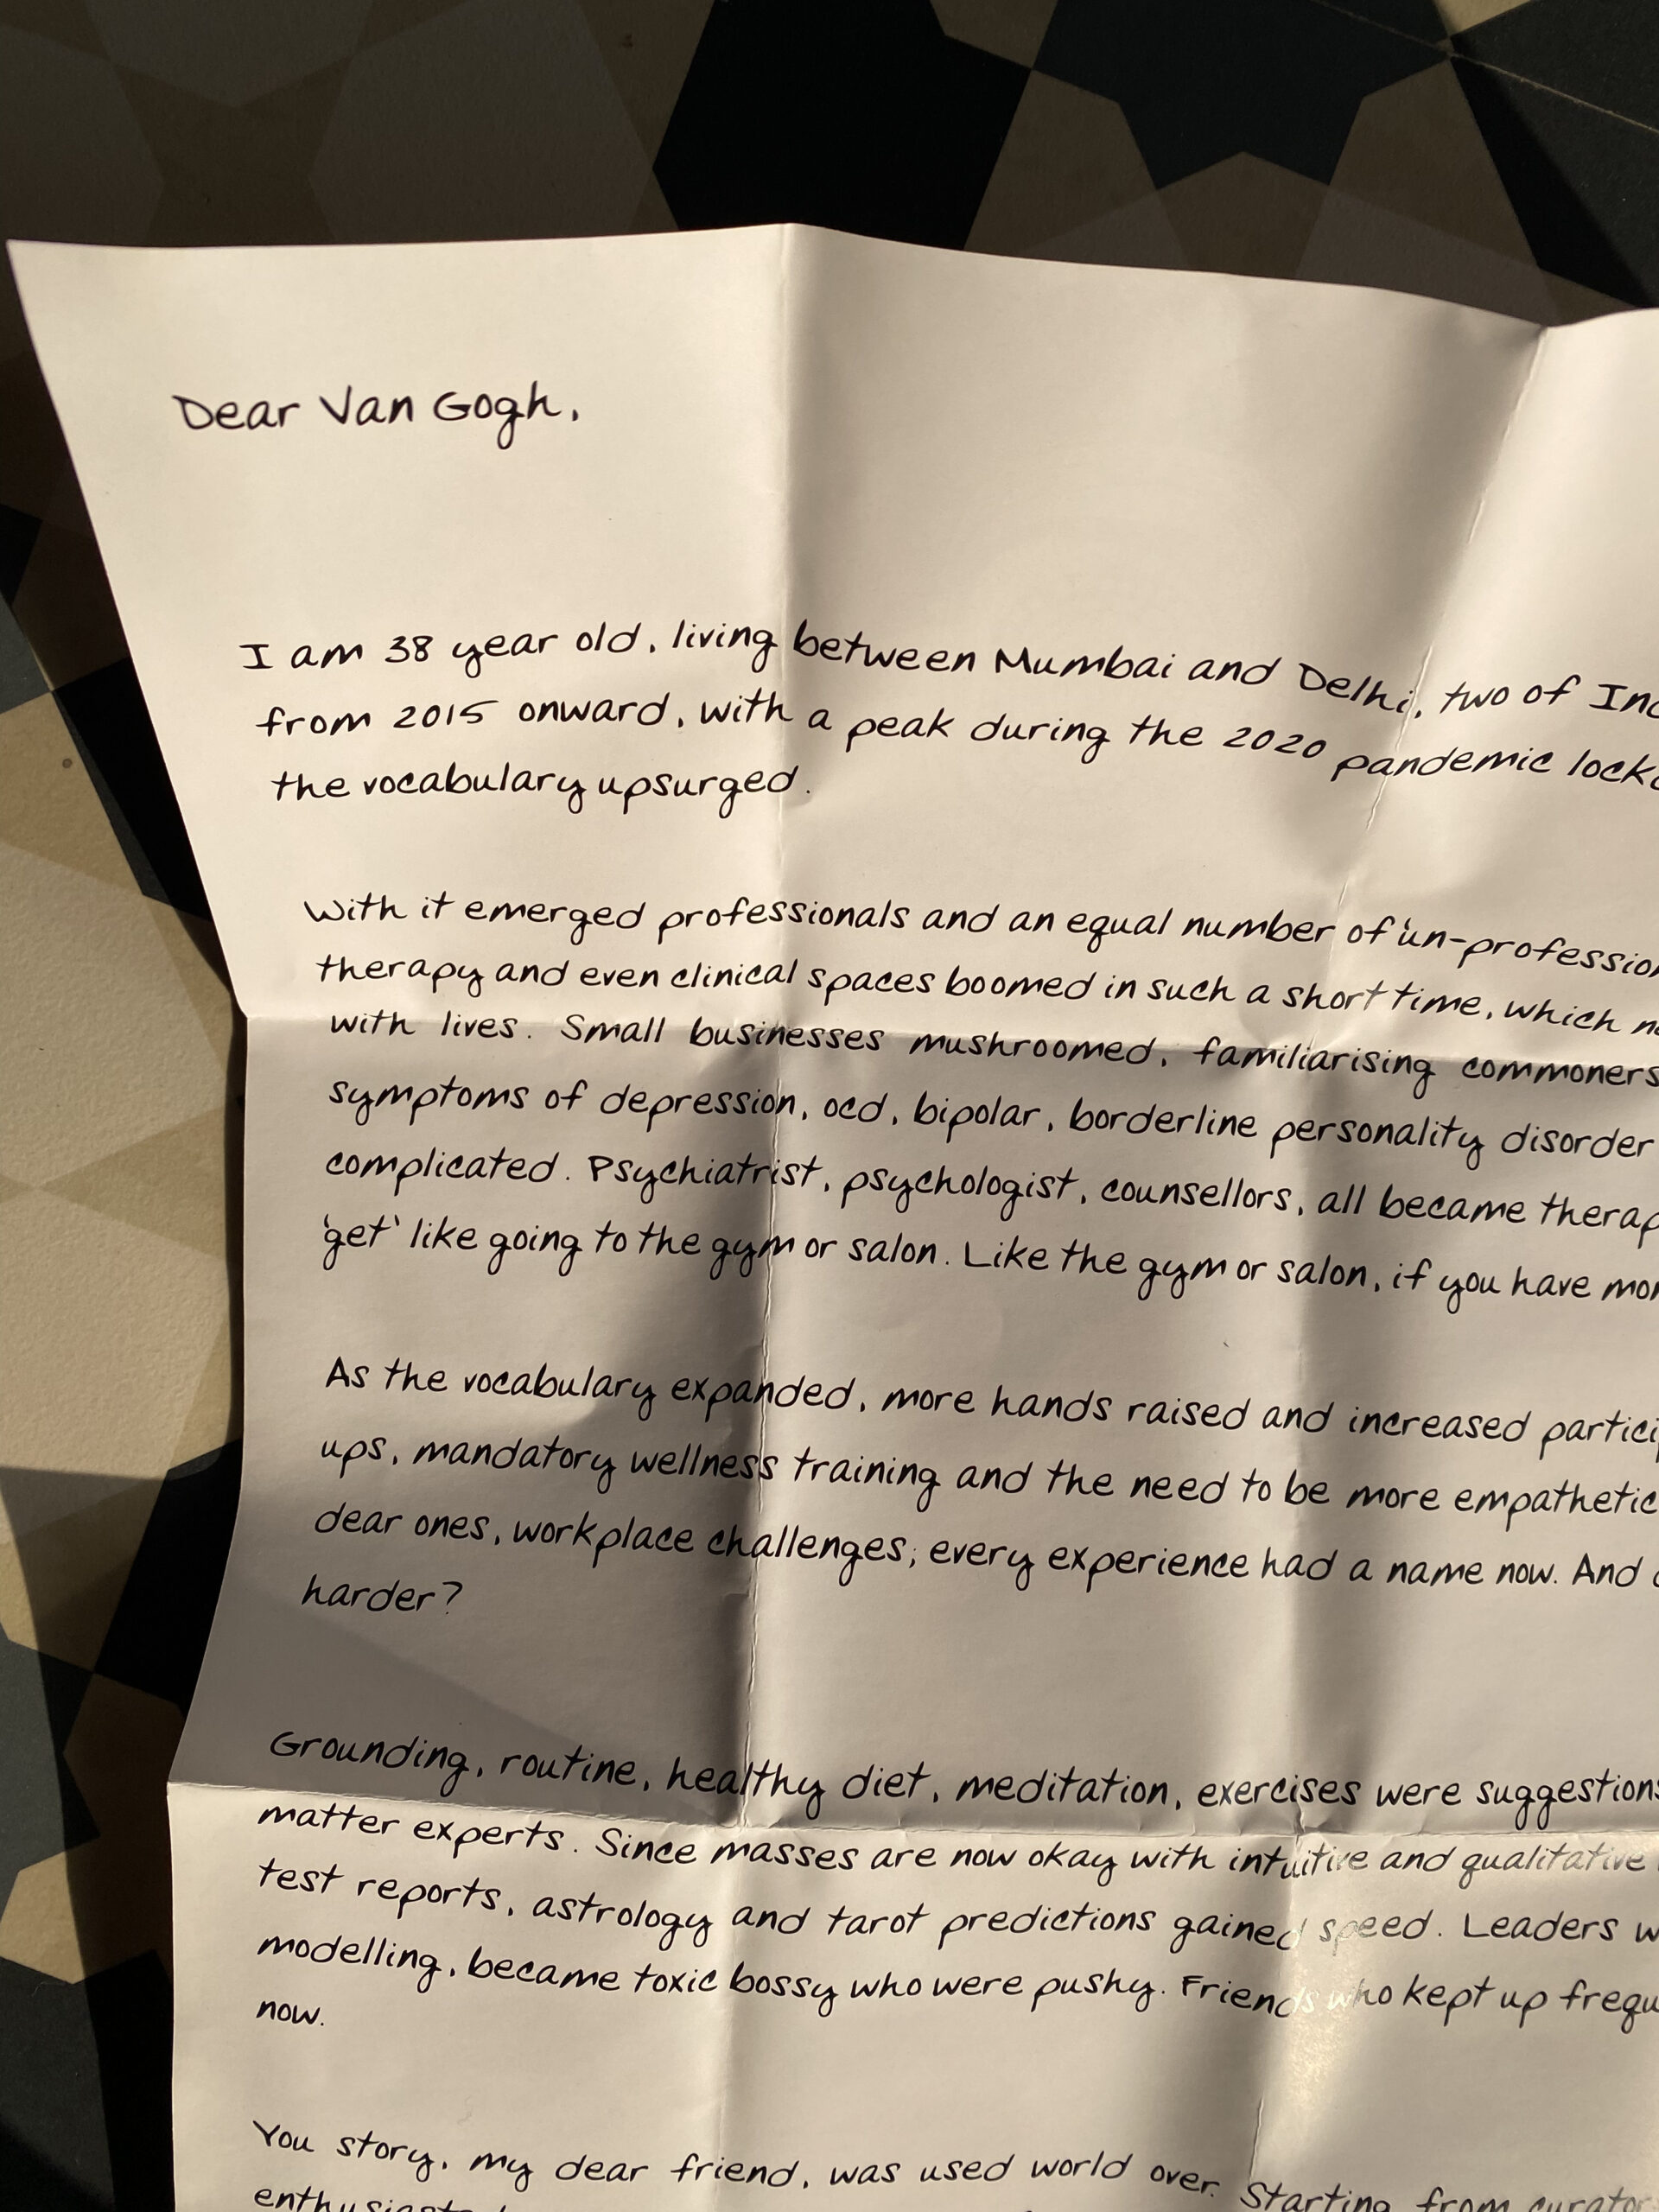 Dear Van Gogh,
I am 38 year old, living between Mumbai and Delhi, two of
from 2015 onward, with a peak during the 2020 pandemic
the vocabulary upsurged.
With it emerged professionals and an equal number of
therapy and even clinical spaces boomed in such a short time, which
with lives. Small businesses mushroomed, familiarising commoners
symptoms of depression, ocd, bipolar, borderline personality disorder
complicated. Psychiatrist, psychologist, counsellors, all became
'get' like going to the gym or salon. Like the gym or salon, if you have
As the vocabulary expanded, more hands raised and increased
ups, mandatory wellness training and the need to be more empathetic
dear ones, workplace challenges; every experience had a name now. And
harder?
Grounding, routine, healthy diet, meditation, exercises were suggestions
matter experts. Since masses are now okay with intuitive and qualitative
test reports, astrology and tarot predictions gained speed. Leaders
modelling, became toxic bossy who were pushy. Friends who kept up
now.
You story, my dear friend, was used world over. Starting from